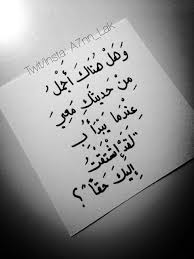 Twt/Insta: A7nn_Lak
وَهَلْ هُنَاكَ أَجْمَلُ
مِنْ حَدِيثِكَ مَعِيَ
عِنْدَمَا يَبْدَأُ بِـ
"لَقَدْ اِشْتَقْتُ
إِلَيْكَ حَقًّا"؟